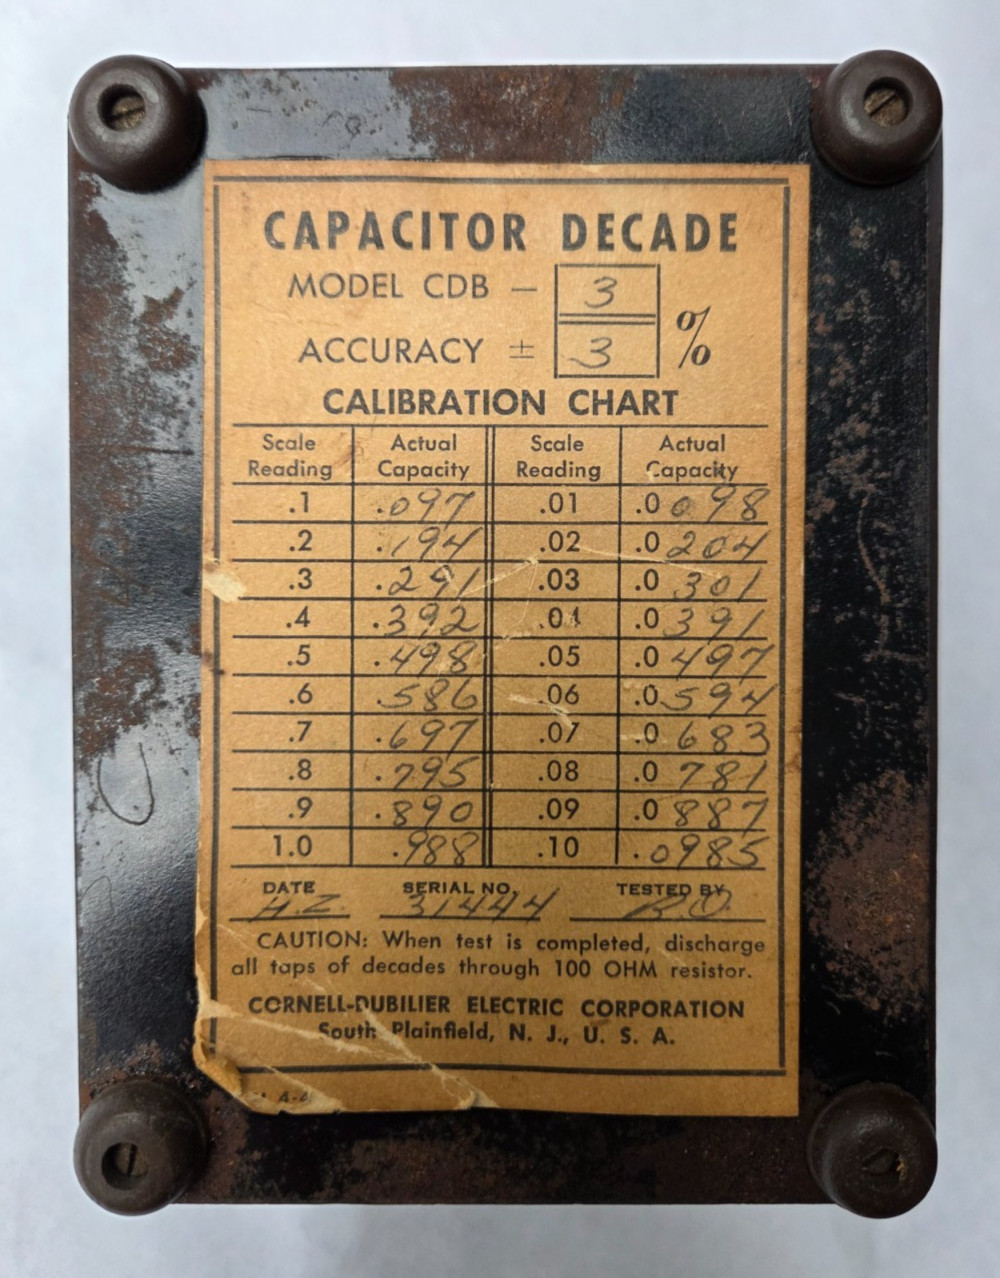 CAPACITOR DECADE
MODEL CDB – 3
ACCURACY ± 3 %
CALIBRATION CHART
Scale Reading Actual Capacity Scale Reading Actual Capacity
.1 .097 .01 .0098
.2 .194 .02 .0204
.3 .291 .03 .0301
.4 .392 .04 .0391
.5 .498 .05 .0497
.6 .586 .06 .0594
.7 .697 .07 .0683
.8 .795 .08 .0781
.9 .890 .09 .0887
1.0 .988 .10 .0985
DATE SERIAL NO. TESTED BY
H.Z. 31444 R.O.
CAUTION: When test is completed, discharge
all taps of decades through 100 OHM resistor.
CORNELL-DUBILIER ELECTRIC CORPORATION
South Plainfield, N. J., U. S. A.